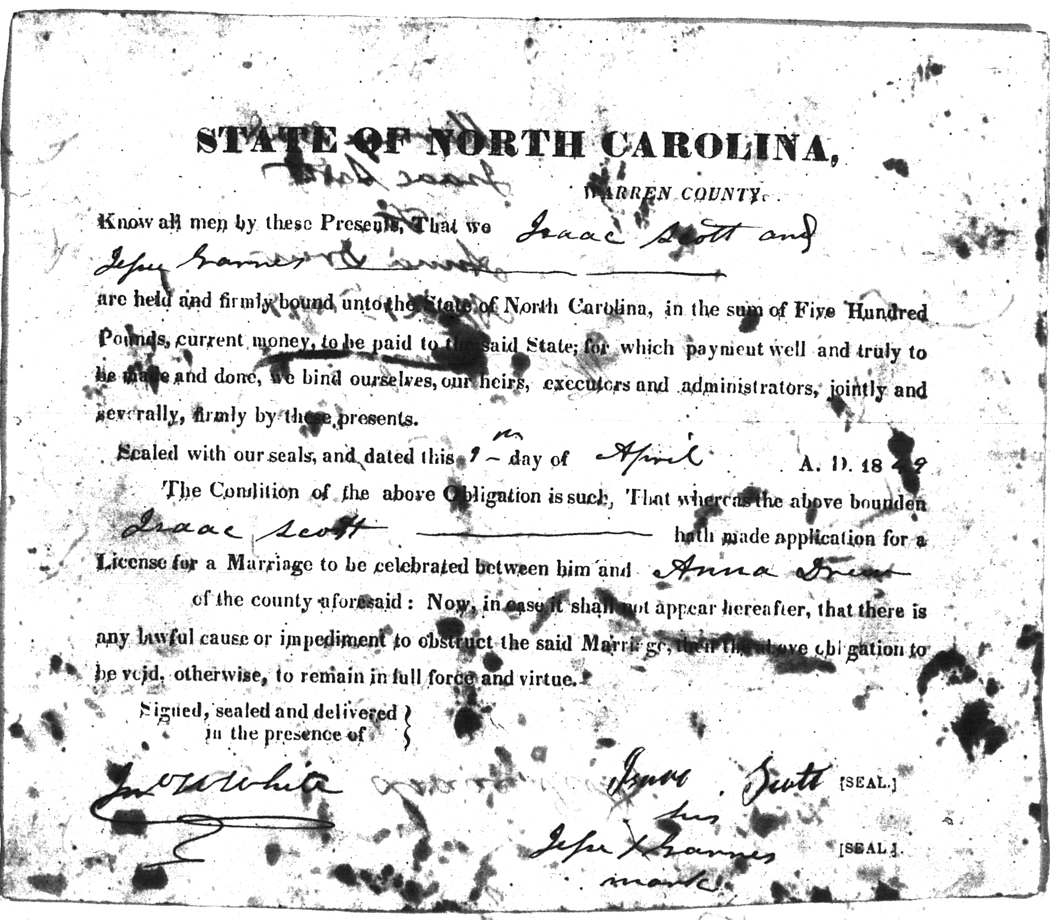 STATE OF NORTH CAROLINA,
WARREN COUNTY.
Know all men by these Presents, That we Isaac Scott and
Jesse Garnes
are held and firmly bound unto the State of North Carolina, in the sum of Five Hundred
Pounds, current money, to be paid to the said State; for which payment well and truly to
be made and done, we bind ourselves, our heirs, executors and administrators, jointly and
severally, firmly by these presents.
Sealed with our seals, and dated this 9th day of April A. D. 1849
The Condition of the above Obligation is such, That whereas the above bounden
Isaac Scott hath made application for a
License for a Marriage to be celebrated between him and Anna Drew
of the county aforesaid: Now, in case it shall not appear hereafter, that there is
any lawful cause or impediment to obstruct the said Marriage, then the above obligation to
be void, otherwise, to remain in full force and virtue.
Signed, sealed and delivered
in the presence of
Jno W White
Isaac Scott [SEAL.]
his
Jesse X Garnes [SEAL].
mark